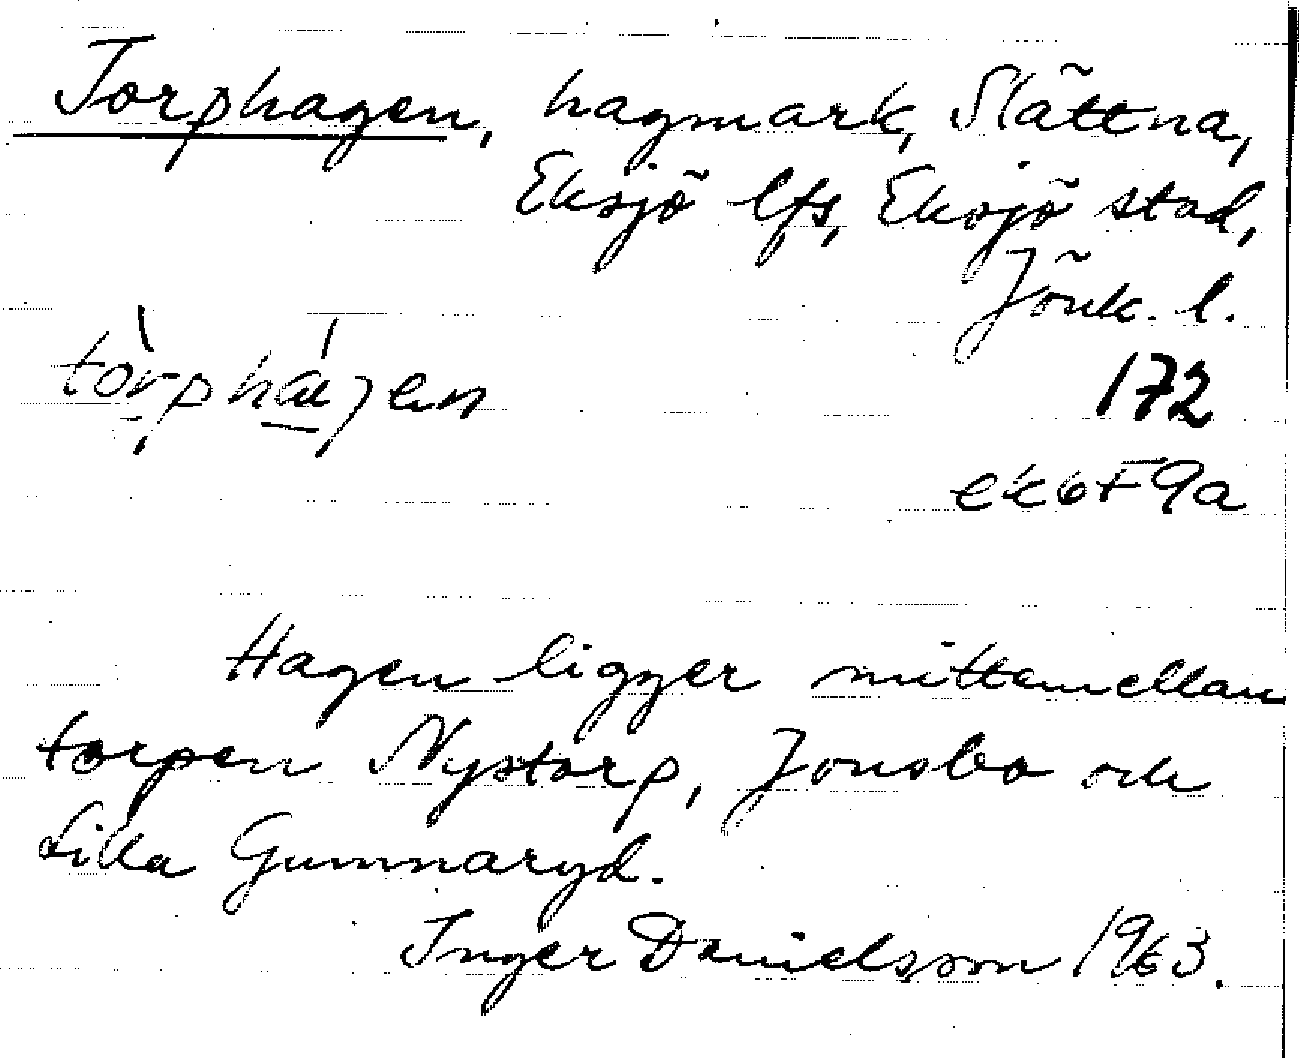 Torphagen, hagmark, Slättna,
Eksjö lfs, Eksjö stad,
Jönk. l.
172
ek 6F9a
Hagen ligger mittemellan
torpen Nystorp, Jonsbo och
Lilla Gummaryd.
Inger Danielsson 1963.